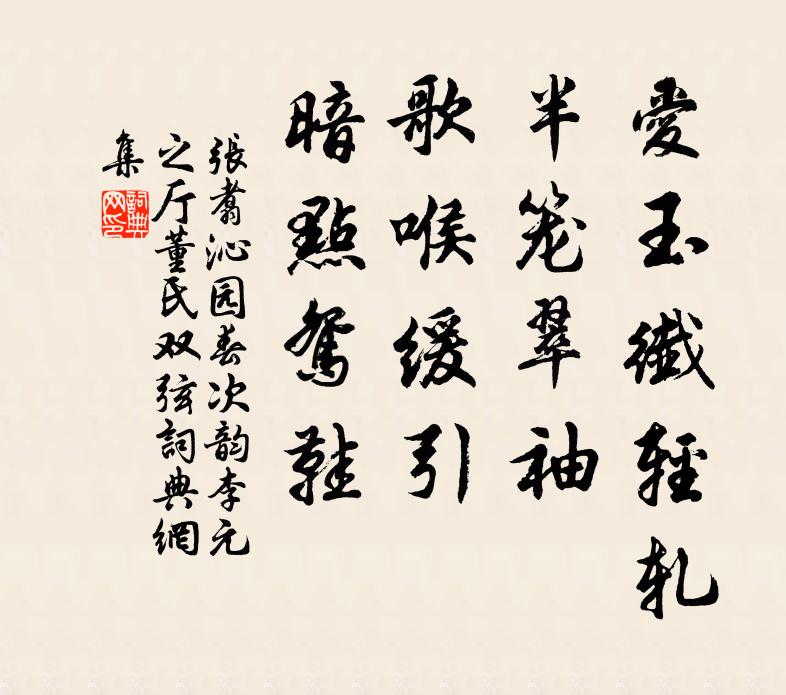 愛玉纖輕軋
半笼翠袖
歌喉缓引
暗點鴛鞋
張翥沁园春次韵李元
之厅董民双弦詞典網
集
詞典網印